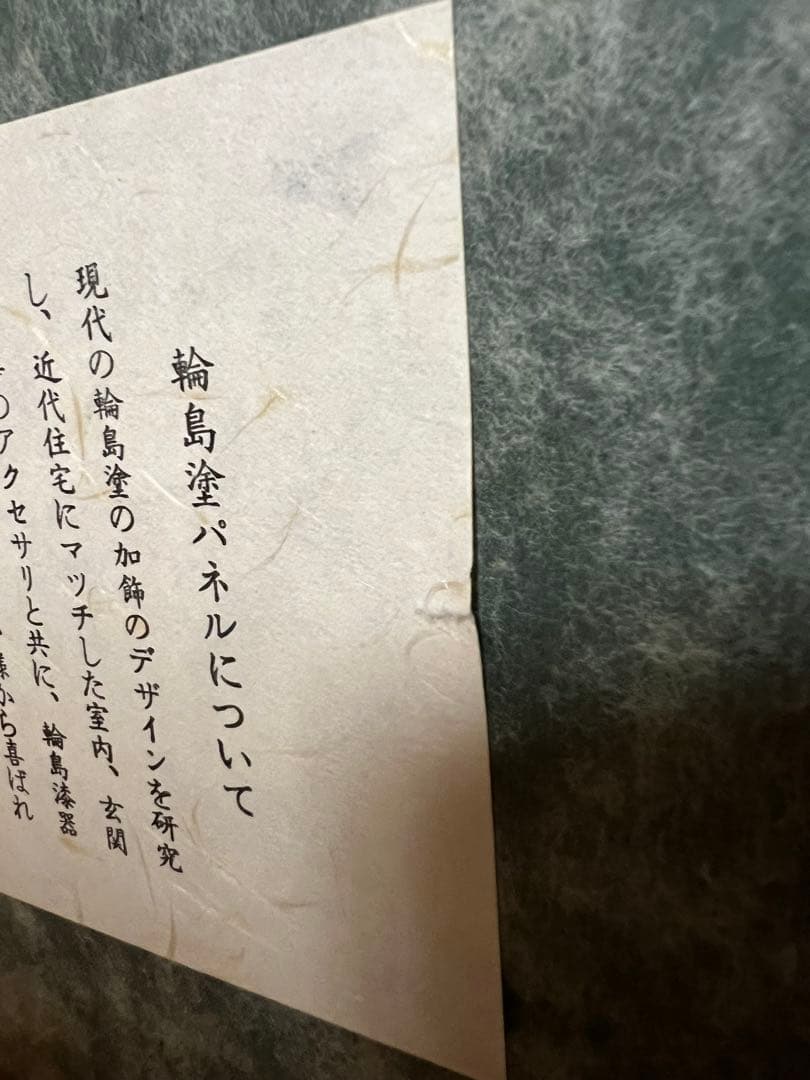 輪島塗パネルについて
現代の輪島塗の加飾のデザインを研究
し、近代住宅にマッチした室内、玄関
のアクセサリと共に、輪島漆器
様から喜ばれ